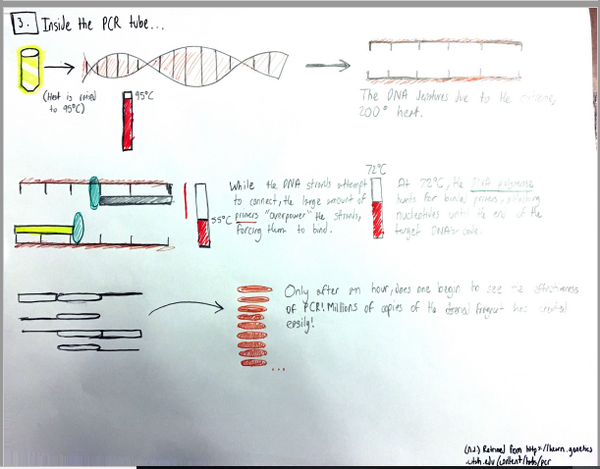 3. Inside the PCR tube...
(Heat is raised
to 95°C)
95°C
The DNA denatures due to the extreme,
200° heat.
While the DNA strands attempt
to connect, the large amount of
primers "overpower" the strands,
forcing them to bind.
55°C
72°C
At 72°C, the DNA polymerase
hunts for binded primers, attaching
nucleotides until the end of the
target DNA's code.
Only after an hour, does one begin to see the effectiveness
of PCR! Millions of copies of the desired fragment has created
easily!
...
(n.d.) Retrieved from http://learn.genetics
.utah.edu/content/labs/pcr